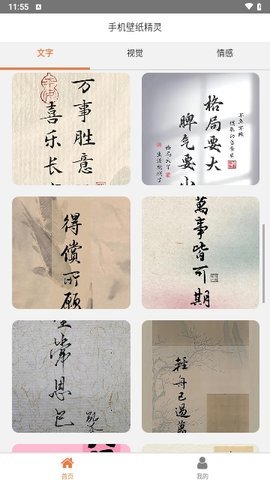 11:55
手机壁纸精灵
文字 视觉 情感
万事胜意
喜乐长
格局要大
脾气要小
得償所願
萬事皆可期
輕舟已過萬
首页 我的